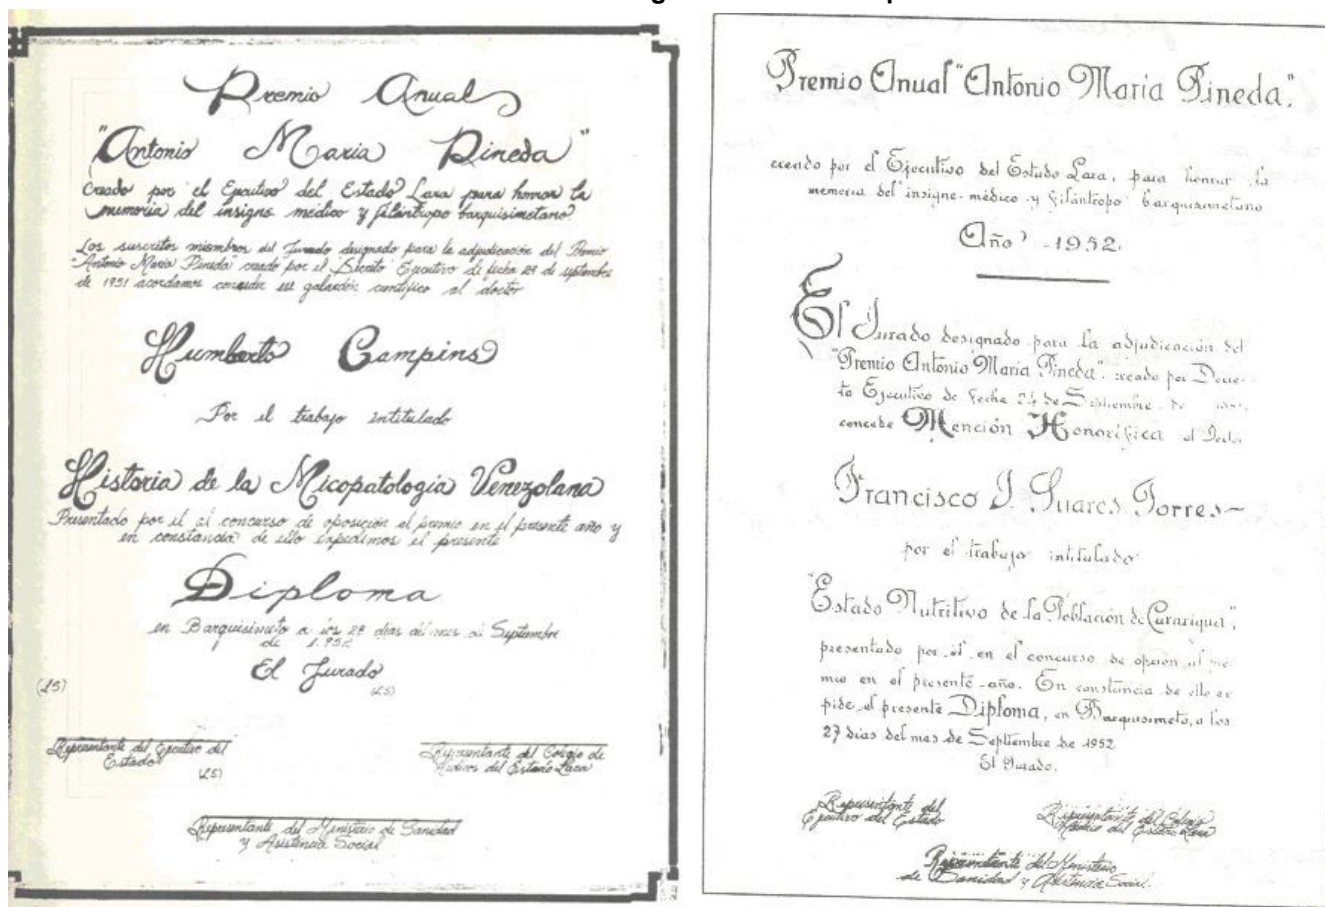 Premio Anual
"Antonio Maria Pineda"
Creado por el Ejecutivo del Estado Lara para honrar la
memoria del insigne médico y filántropo barquisimetano
Los suscritos miembros del Jurado designado para la adjudicación del Premio
"Antonio Maria Pineda" creado por el Decreto Ejecutivo de fecha 29 de septiembre
de 1951 acordamos conceder ese galardón científico al doctor
Humberto Campins
Por el trabajo intitulado
Historia de la Micopatologia Venezolana
Presentado por él al concurso de oposición al premio en el presente año y
en constancia de ello expedimos el presente
Diploma
en Barquisimeto a los 28 dias del mes de Septiembre
de 1.952
El Jurado
(LS)
(LS)
Representante del Ejecutivo del
Estado
(LS)
Representante del Colegio de
Médicos del Estado Lara
Representante del Ministerio de Sanidad
y Asistencia Social
Premio Anual "Antonio Maria Pineda".
creado por el Ejecutivo del Estado Lara, para honrar la
memoria del insigne médico y filántropo barquisimetano
Año 1952.
El Jurado designado para la adjudicación del
"Premio Antonio Maria Pineda". creado por Decre-
to Ejecutivo de Fecha 24 de Septiembre de
concede Mención Honorífica al Doctor
Francisco J. Suares Torres
por el trabajo intitulado
"Estado Nutritivo de la Población de Curarigua",
presentado por él en el concurso de opción al pre-
mio en el presente año. En constancia de ello ex
pide el presente Diploma, en Barquisimeto, a los
27 dias del mes de Septiembre de 1952
El Jurado.
Representante del
Ejecutivo del Estado
Representante del Colegio
Médico del Estado Lara
Representante del Ministerio
de Sanidad y Asistencia Social.